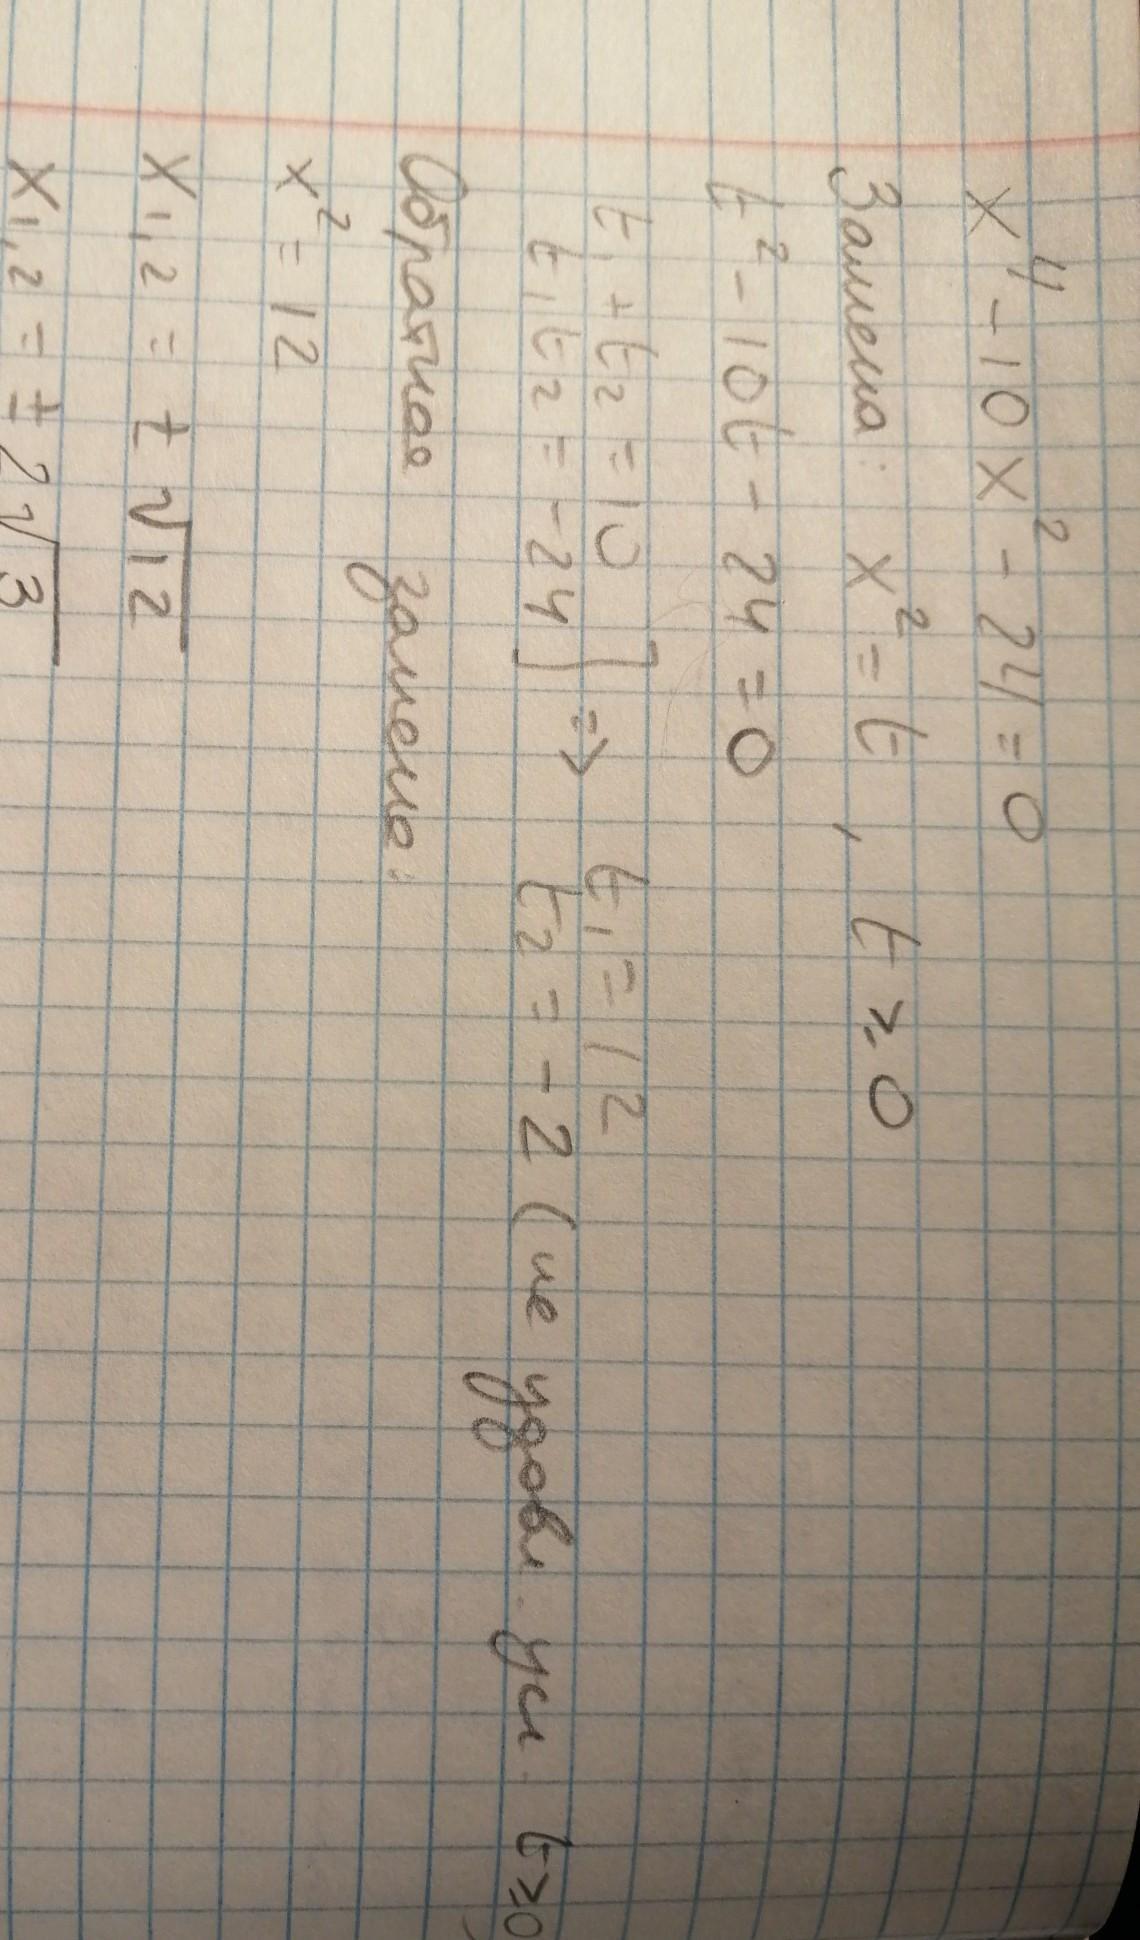 x⁴ - 10x² - 24 = 0
Замена: x² = t, t ≥ 0
t² - 10t - 24 = 0
t₁ + t₂ = 10 ] => t₁ = 12
t₁t₂ = -24 ] t₂ = -2 (не удовл. усл. t ≥ 0
Обратная замена:
x² = 12
x₁,₂ = ± √12
x₁,₂ = ± 2√3